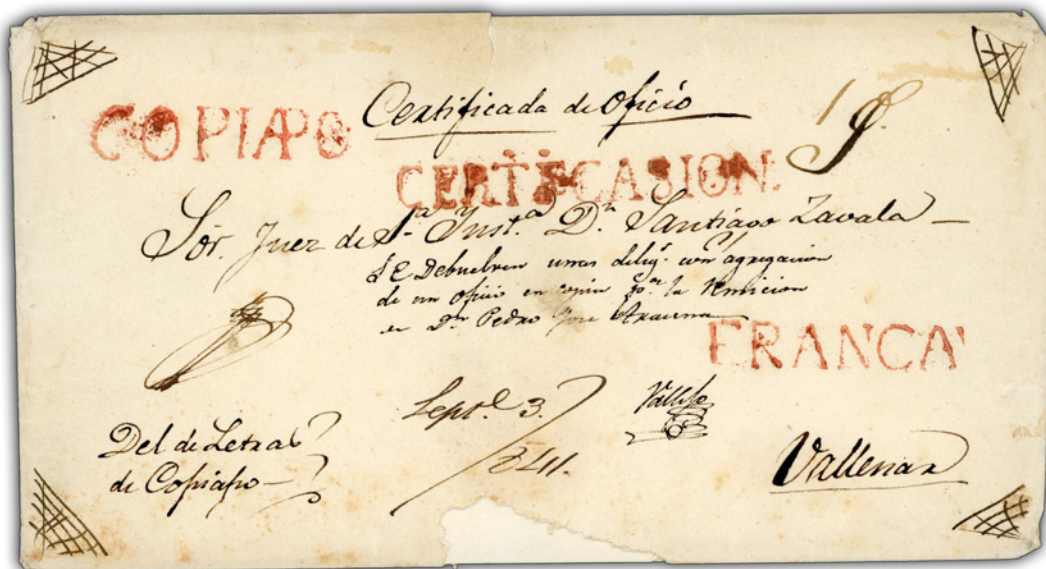 Certificada de Oficio
COPIAPO
CERTIFICASION.
Sōr. Juez de 1ª. Instª. Dn. Santiago Zavala
SE Debuelven unas dilig. con agregacion
de un oficio en copia pª. la Remicion
de Dn. Pedro Jose
FRANCA
Septe. 3.
841.
Vallejo
Del de Letras
de Copiapo
Vallenar